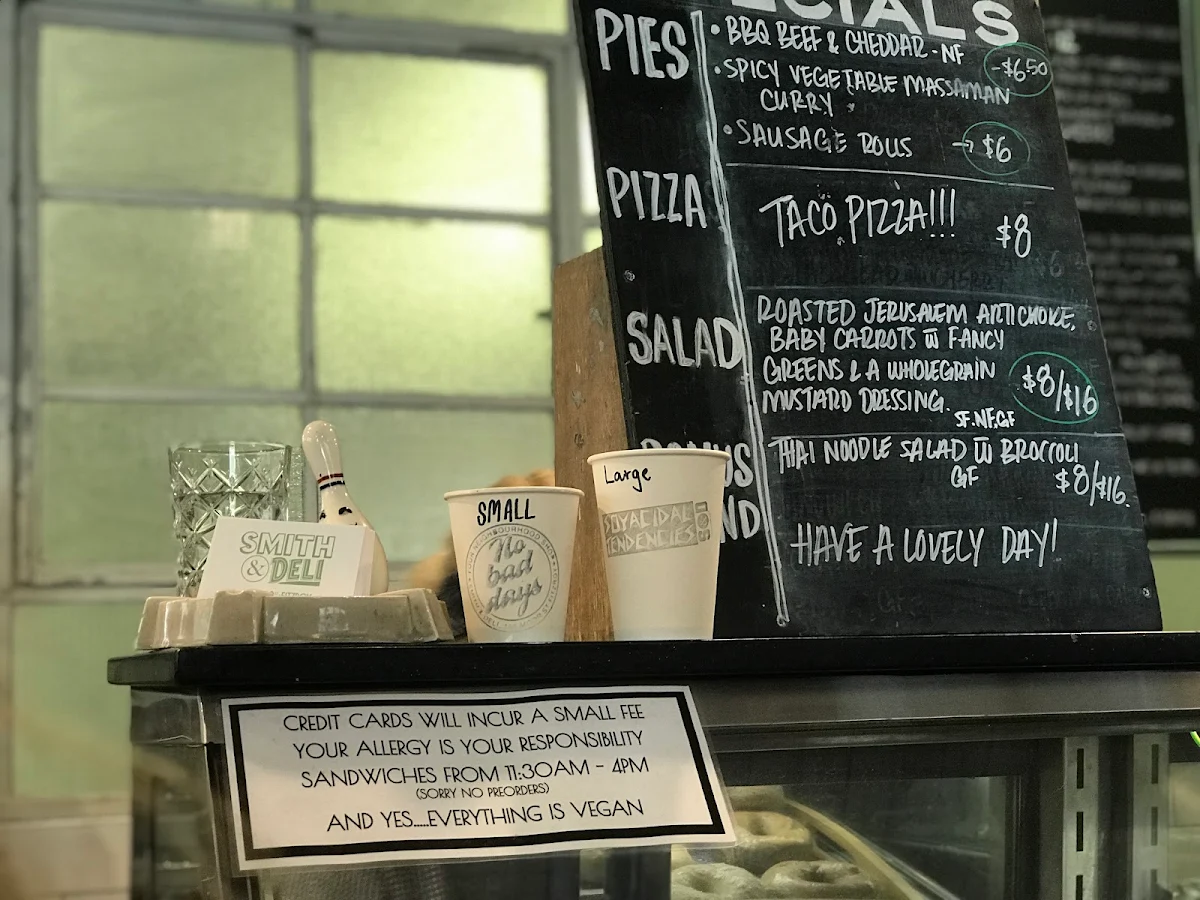 ECIALS
PIES
• BBQ BEEF & CHEDDAR - NF
- $6.50
• SPICY VEGETABLE MASSAMAN
CURRY
• SAUSAGE ROLLS → $6
PIZZA
TACO PIZZA!!! $8
SALAD
ROASTED JERUSALEM ARTICHOKE,
BABY CARROTS W FANCY
GREENS & A WHOLEGRAIN
MUSTARD DRESSING.
$8/$16
SF.NF.GF
THAI NOODLE SALAD W BROCCOLI
GF $8/$16.
HAVE A LOVELY DAY!
SMITH
& DELI
SMALL
No
bad
days
Large
SOYACIDAL
TENDENCIES
CREDIT CARDS WILL INCUR A SMALL FEE
YOUR ALLERGY IS YOUR RESPONSIBILITY
SANDWICHES FROM 11:30AM - 4PM
(SORRY NO PREORDERS)
AND YES.....EVERYTHING IS VEGAN